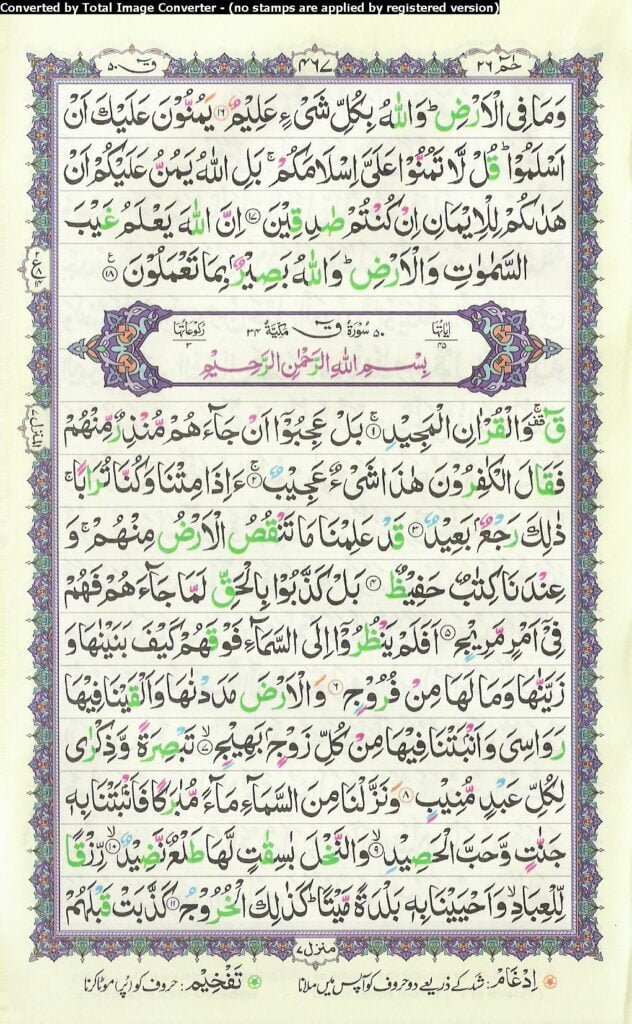 Converted by Total Image Converter - (no stamps are applied by registered version)
حٰمٓ ٢٦
٤٦٧
قٓ ٥٠
وَمَا فِی الْاَرْضِ ؕ وَاللّٰهُ بِكُلِّ شَیْءٍ عَلِیْمٌ ﴿۱۶﴾ یَمُنُّوْنَ عَلَیْكَ اَنْ
اَسْلَمُوْا ؕ قُلْ لَّا تَمُنُّوْا عَلَیَّ اِسْلَامَكُمْ ۚ بَلِ اللّٰهُ یَمُنُّ عَلَیْكُمْ اَنْ
هَدٰىكُمْ لِلْاِیْمَانِ اِنْ كُنْتُمْ صٰدِقِیْنَ ﴿۱۷﴾ اِنَّ اللّٰهَ یَعْلَمُ غَیْبَ
السَّمٰوٰتِ وَالْاَرْضِ ؕ وَاللّٰهُ بَصِیْرٌۢ بِمَا تَعْمَلُوْنَ ﴿۱۸﴾
اٰیَاتُهَا ٤٥
٥٠ سُوْرَةُ قٓ مَكِّیَّةٌ ٣٤
رُكُوْعَاتُهَا ٣
بِسْمِ اللّٰهِ الرَّحْمٰنِ الرَّحِیْمِ
قٓ ۫ۚ وَالْقُرْاٰنِ الْمَجِیْدِ ﴿۱﴾ۚ بَلْ عَجِبُوْۤا اَنْ جَآءَهُمْ مُّنْذِرٌ مِّنْهُمْ
فَقَالَ الْكٰفِرُوْنَ هٰذَا شَیْءٌ عَجِیْبٌ ﴿۲﴾ۚ ءَاِذَا مِتْنَا وَكُنَّا تُرَابًا ۚ
ذٰلِكَ رَجْعٌۢ بَعِیْدٌ ﴿۳﴾ قَدْ عَلِمْنَا مَا تَنْقُصُ الْاَرْضُ مِنْهُمْ ۚ وَ
عِنْدَنَا كِتٰبٌ حَفِیْظٌ ﴿۴﴾ بَلْ كَذَّبُوْا بِالْحَقِّ لَمَّا جَآءَهُمْ فَهُمْ
فِیْۤ اَمْرٍ مَّرِیْجٍ ﴿۵﴾ اَفَلَمْ یَنْظُرُوْۤا اِلَی السَّمَآءِ فَوْقَهُمْ كَیْفَ بَنَیْنٰهَا وَ
زَیَّنّٰهَا وَمَا لَهَا مِنْ فُرُوْجٍ ﴿۶﴾ وَالْاَرْضَ مَدَدْنٰهَا وَاَلْقَیْنَا فِیْهَا
رَوَاسِیَ وَاَنْۢبَتْنَا فِیْهَا مِنْ كُلِّ زَوْجٍۭ بَهِیْجٍ ﴿۷﴾ۙ تَبْصِرَةً وَّذِكْرٰی
لِكُلِّ عَبْدٍ مُّنِیْبٍ ﴿۸﴾ وَنَزَّلْنَا مِنَ السَّمَآءِ مَآءً مُّبٰرَكًا فَاَنْۢبَتْنَا بِهٖ
جَنّٰتٍ وَّحَبَّ الْحَصِیْدِ ﴿۹﴾ۙ وَالنَّخْلَ بٰسِقٰتٍ لَّهَا طَلْعٌ نَّضِیْدٌ ﴿۱۰﴾ۙ رِّزْقًا
لِّلْعِبَادِ ۙ وَاَحْیَیْنَا بِهٖ بَلْدَةً مَّیْتًا ؕ كَذٰلِكَ الْخُرُوْجُ ﴿۱۱﴾ كَذَّبَتْ قَبْلَهُمْ
المنزل ٧
منزل ٧
اِدْغَام: شد کے ذریعے دو حروف کو آپس میں ملانا
تَفْخِیْم: حروف کو (پُر) موٹا کرنا